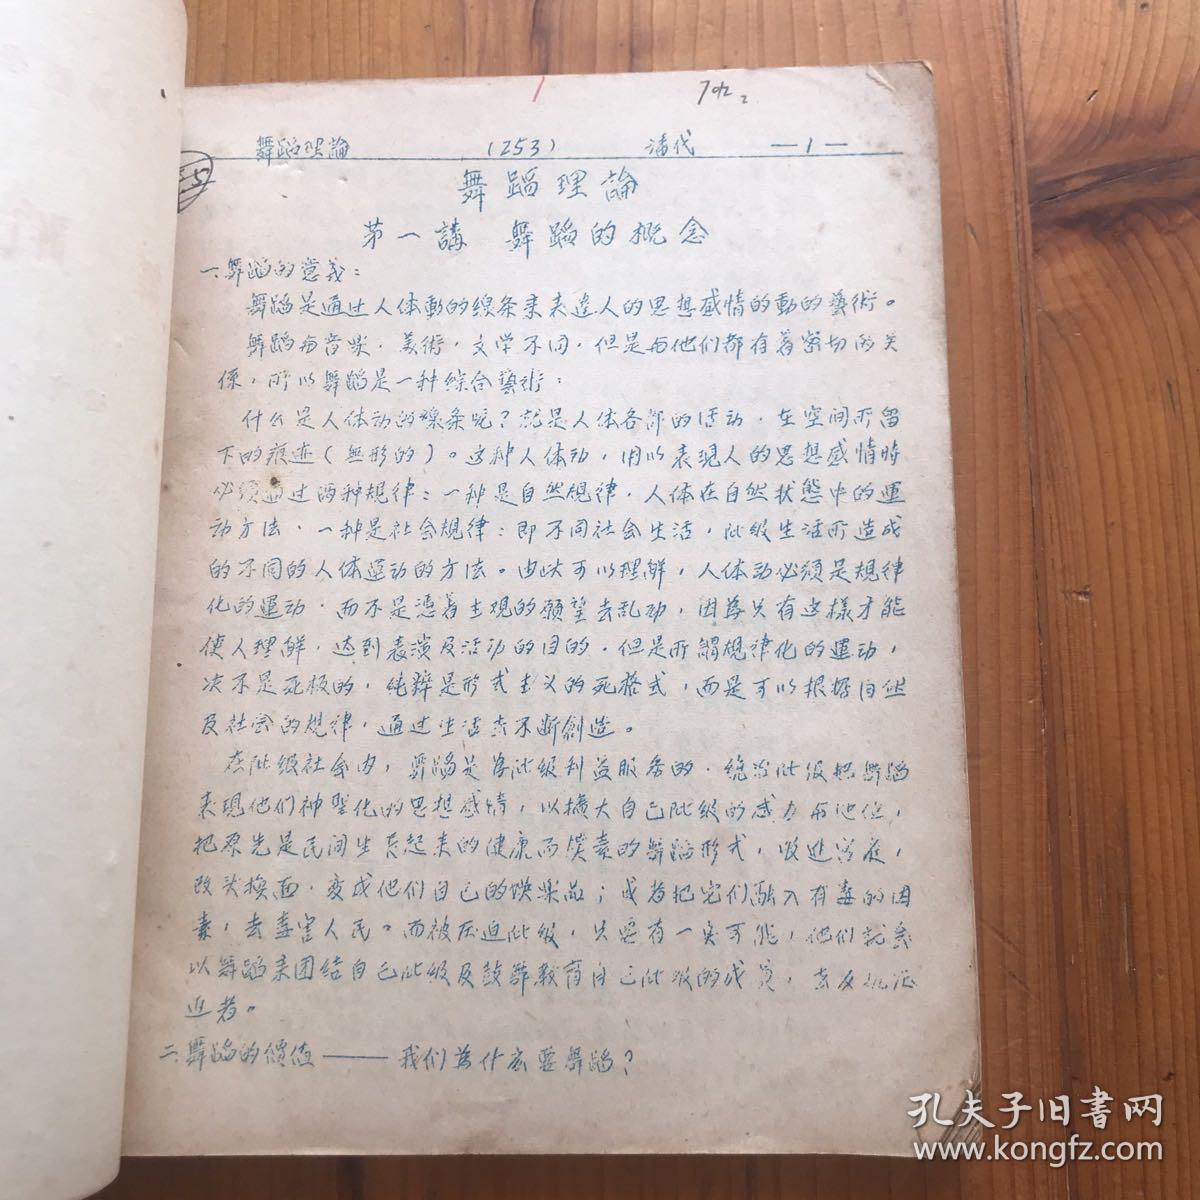 舞蹈理論 (253) 潘代 —1—
舞蹈理論
第一講 舞蹈的概念
一、舞蹈的意義：
舞蹈是通过人体動的線条来表達人的思想感情的動的藝術。
舞蹈与音樂，美術，文学不同，但是与他们都有着密切的关
係，所以舞蹈是一种綜合藝術：
什么是人体动的線条呢？就是人体各部的活动，在空间所留
下的痕迹（無形的）。这种人体动，用以表現人的思想感情時
必須通过两种規律：一种是自然規律，人体在自然状態中的運
动方法，一种是社会規律：即不同社会生活，阶级生活所造成
的不同的人体運动的方法。由此可以理解，人体动必須是規律
化的運动，而不是憑着主观的願望去乱动，因為只有这樣才能
使人理解，达到表演及活动的目的，但是所謂規律化的運动，
决不是死板的，純粹是形式主义的死格式，而是可以根据自然
及社会的規律，通过生活去不断創造。
在阶级社会内，舞蹈是為阶级利益服务的，統治阶级把舞蹈
表現他们神聖化的思想感情，以擴大自己阶级的威力与地位，
把原先是民间生長起来的健康而僕素的舞蹈形式，收進宫庭，
改头換面，变成他们自己的娱樂品；或者把它们融入有毒的因
素，去毒害人民。而被压迫阶级，只要有一实可能，他们就要
以舞蹈来团结自己阶级及鼓舞教育自己阶级的成員，去反抗压
迫者。
二、舞蹈的價值——我们為什么要舞蹈？
孔夫子旧書网
www.kongfz.com